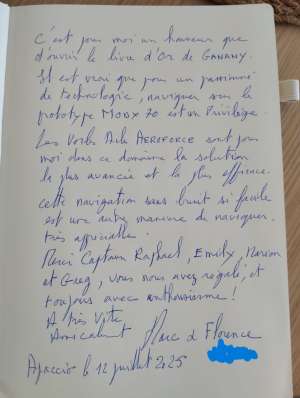 C'est pour moi un honneur que
d'ouvrir le livre d'Or de GANANY.
Il est vrai que pour un passionné
de technologie, naviguer sur le
prototype MODX 70 est un Privilège
Les Voiles Aile AEROFORCE sont pour
moi dans ce domaine la solution
la plus avancée et la plus efficiente.
cette navigation sans bruit si facile
est une autre manière de naviguer.
très appréciable.
Merci Captain Raphael, Emily, Marion
et Greg, vous nous avez régalé, et
toujours avec enthousiasme !
A très Vite
Amicalement
Marc & Florence
Ajaccio le 12 juillet 2025